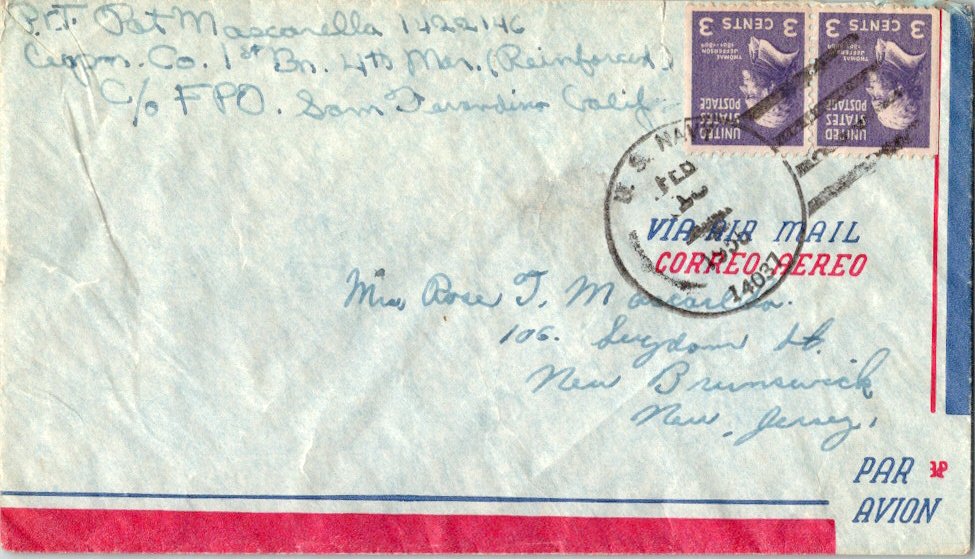 Pvt. Pat Mascarella 1422146
Co. 1st Bn. 4th Mar. (Reinforced)
C/o FPO. San Francisco Calif.
3 CENTS 3
THOMAS JEFFERSON
1801-1809
UNITED
STATES
POSTAGE
3 CENTS 3
THOMAS JEFFERSON
1801-1809
UNITED
STATES
POSTAGE
U. S. NAVY
FEB
14037
VIA AIR MAIL
CORREO AEREO
Rose T. Mascarella.
106. St.
New Brunswick
New Jersey,
PAR
AVION